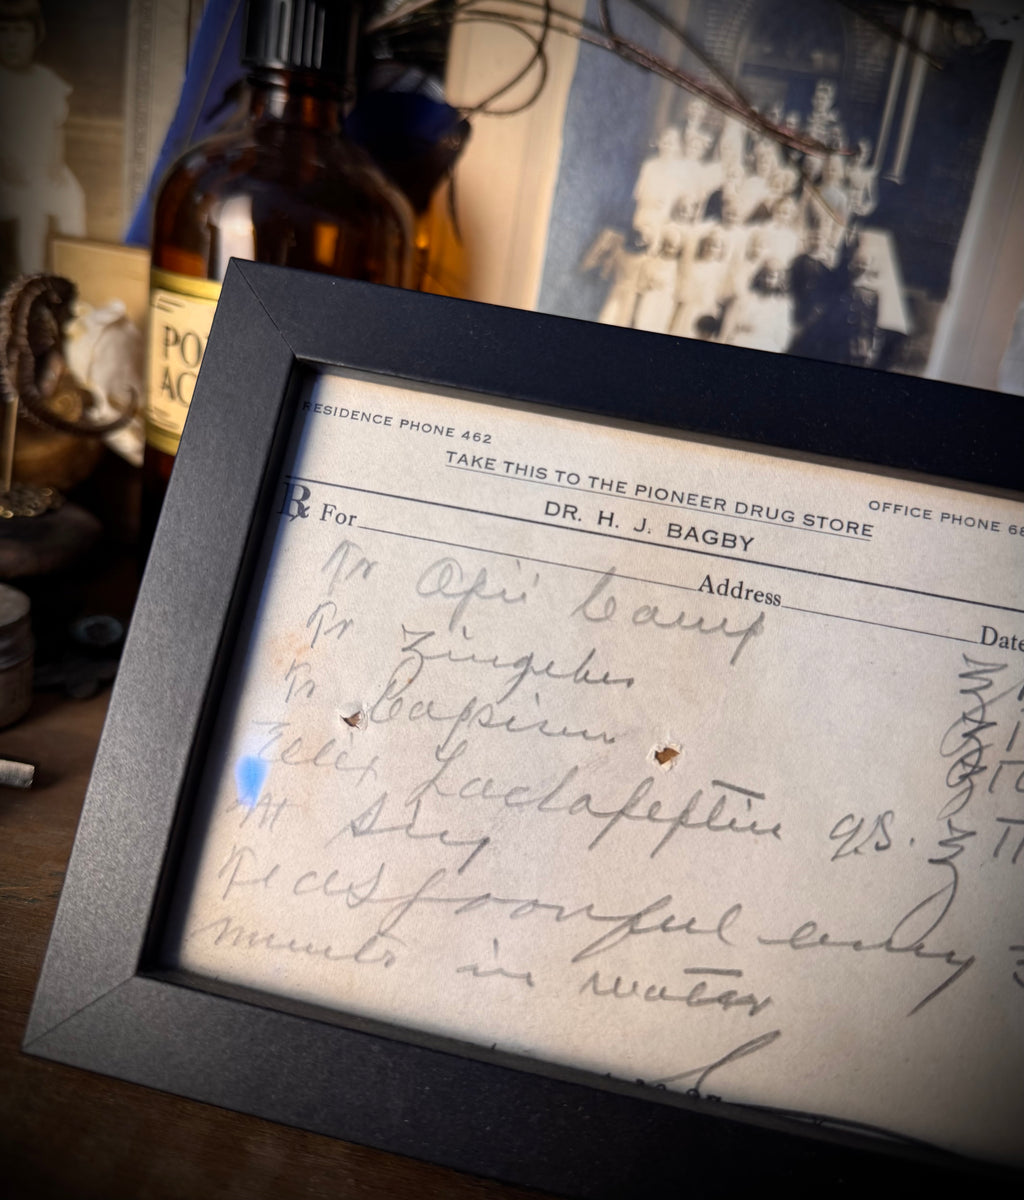 PO
AC
RESIDENCE PHONE 462
TAKE THIS TO THE PIONEER DRUG STORE
OFFICE PHONE 68
DR. H. J. BAGBY
℞ For Address Date
Tr Opii Camp
Tr Zingeber
Tr Capsicum
Elix Lactopeptin qs.
Sig
Teaspoonful every 3
minutes in water